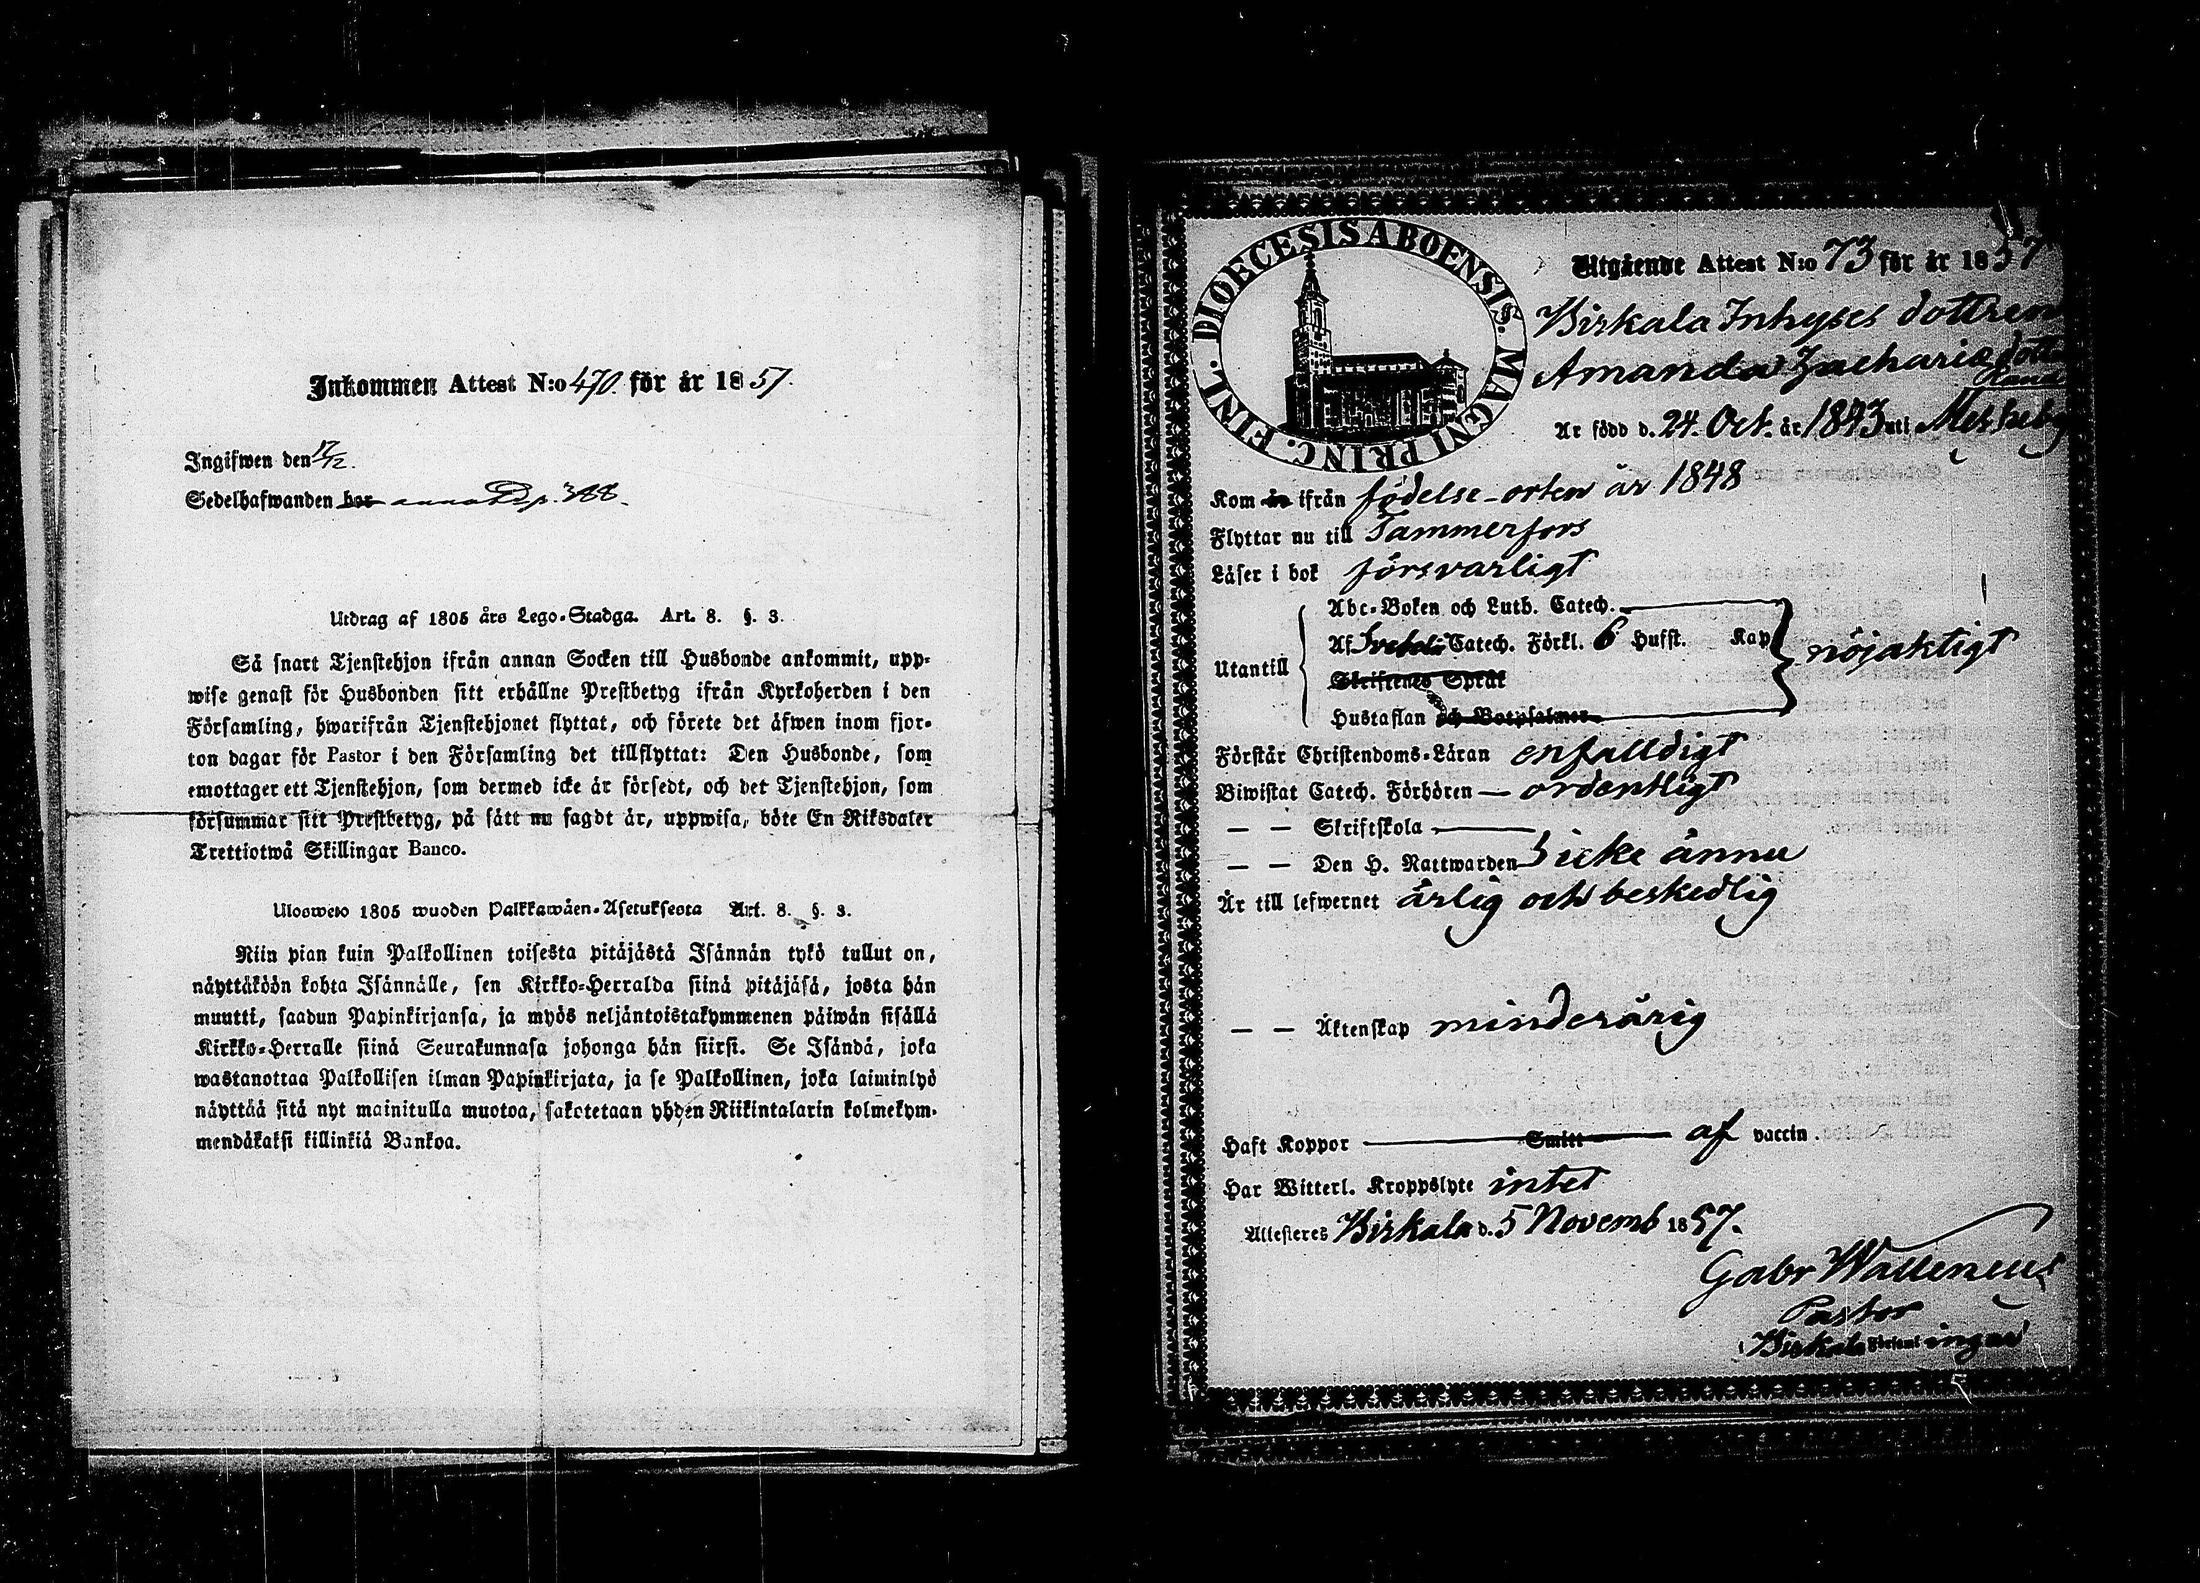 Inkommen Attest N:o 470. för år 1857.
Ingifwen den 17/12.
Sedelhafwanden bor annot. p. 388.
Utdrag af 1805 års Lego-Stadga. Art. 8. §. 3.
Så snart Tjenstehjon ifrån annan Socken till Husbonde ankommit, upp-
wise genast för Husbonden sitt erhållne Prestbetyg ifrån Kyrkoherden i den
Församling, hwarifrån Tjenstehjonet flyttat, och förete det äfwen inom fjor-
ton dagar för Pastor i den Församling det tillflyttat: Den Husbonde, som
emottager ett Tjenstehjon, som dermed icke är försedt, och det Tjenstehjon, som
försummar sitt Prestbetyg, på sätt nu sagdt är, uppwisa, böte En Riksdaler
Trettiotwå Skillingar Banco.
Ulosweto 1805 wuoden Palkkawäen-Asetuksesta Art. 8. §. 3.
Niin pian kuin Palkollinen toisesta pitäjästä Isännän tykö tullut on,
näyttäköön kohta Isännälle, sen Kirkko-Herralda siinä pitäjäsä, josta hän
muutti, saadun Papinkirjansa, ja myös neljäntoistakymmenen päiwän sisällä
Kirkko-Herralle siinä Seurakunnasa johonga hän siirsi. Se Isändä, joka
wastanottaa Palkollisen ilman Papinkirjata, ja se Palkollinen, joka laiminlyö
näyttää sitä nyt mainitulla muotoa, sakotetaan yhden Riikintalarin kolmekym-
mendäkaksi killinkiä Bankoa.
DIOECESIS ABOENSIS. MAGNI PRINC. FINL.
Utgående Attest N:o 73 för år 1857
Birkala Inhyses dottren
Amanda Zacharias dotter
Är född d. 24. Oct. år 1843 uti Messuby
Kom år ifrån födelse-orten år 1848
Flyttar nu till Tammerfors
Läser i bok försvarligt
Utantill
Abc-Boken och Luth. Catech.
Af Svebelii Catech. Förkl. 6 Hufst. Kap
Skriftenes Språk
Hustaflan och Botpsalmer
nöjaktigt
Förstår Christendoms-Läran enfalldigt
Biwistat Catech. Förhören — ordentligt
— — Skriftskola
— — Den H. Nattwarden } icke ännu
Är till lefwernet ärlig och beskedlig
— — Äktenskap minderårig
Haft Koppor Smitt af vaccin.
Har Witterl. Kroppslyte intet
Attesteres Birkala d. 5 Novemb 1857.
Gabr Wallenius
Pastor
i Birkala Församlingen